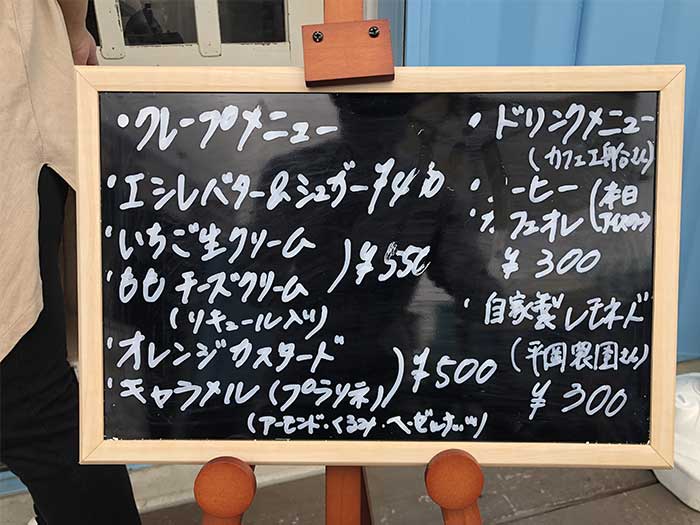 ・クレープメニュー
・エシレバター&シュガー ¥4
・いちご生クリーム
・ももチーズクリーム
(リキュール入り)
¥550
・オレンジカスタード
・キャラメル(プラリネ)
¥500
(アーモンド・くるみ・ヘーゼルナッツ)
・ドリンクメニュー
(カフェ工船さん)
・ ーヒー
カフェオレ
(本日
¥300
・自家製レモネード
(平岡農園さん)
¥300